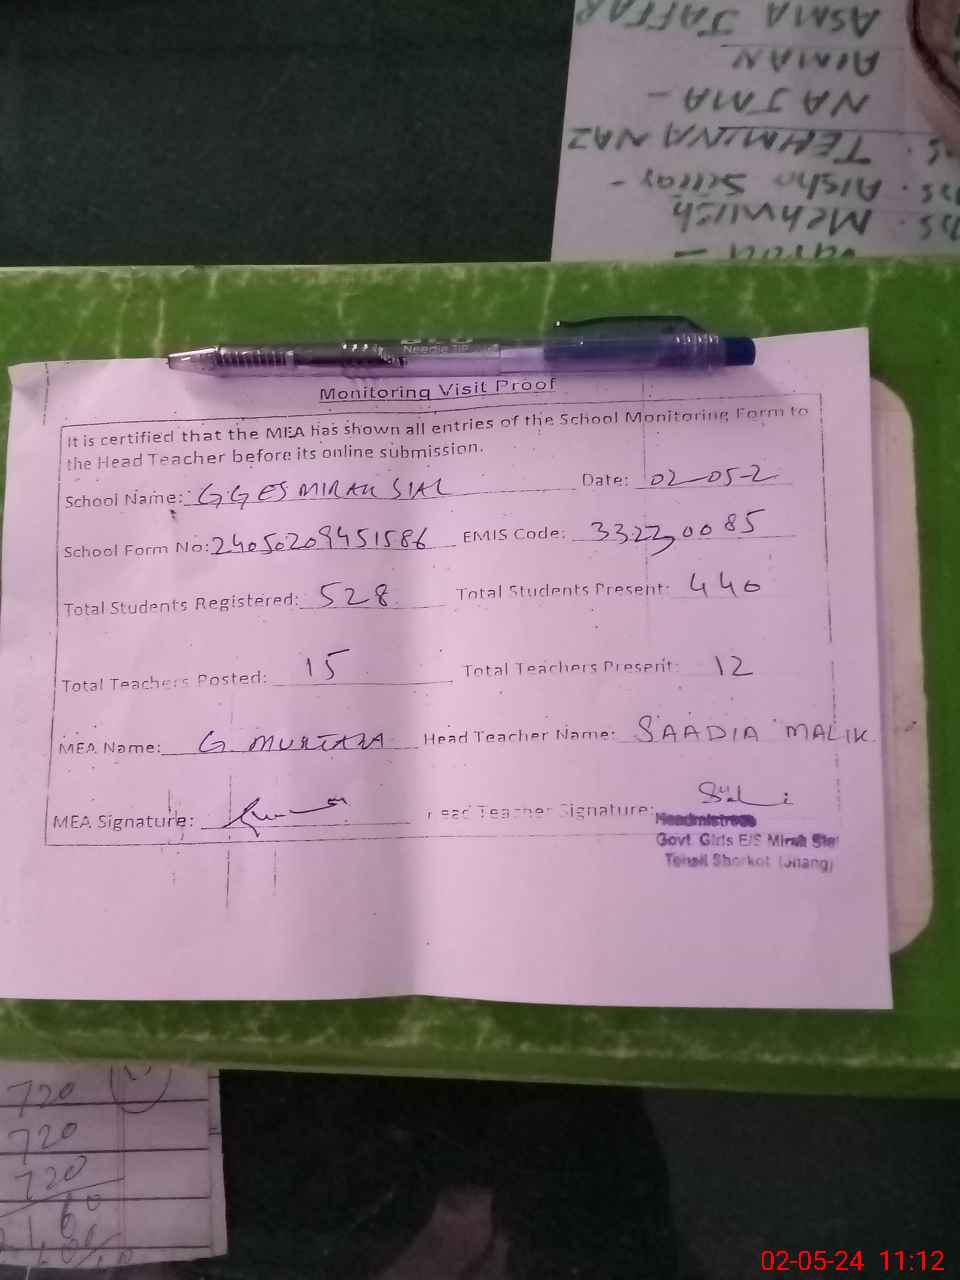 ASMA JAFFAR
AIMAN
NAJMA -
TEHMINA NAZ
Aisha
Mehwish
Needle TIP
Monitoring Visit Proof
It is certified that the MEA has shown all entries of the School Monitoring Form to
the Head Teacher before its online submission.
School Name: GGES MIRAK SIAL Date: 02-05-2
School Form No: 24050209451586 EMIS Code: 33220085
Total Students Registered: 528 Total Students Present: 440
Total Teachers Posted: 15 Total Teachers Present: 12
MEA Name: G. MURTAZA Head Teacher Name: SAADIA MALIK
MEA Signature: Head Teacher Signature:
Headmistress
Govt. Girls E/S Mirak Sial
Tehsil Shorkot (Jhang)
720
720
720
02-05-24 11:12